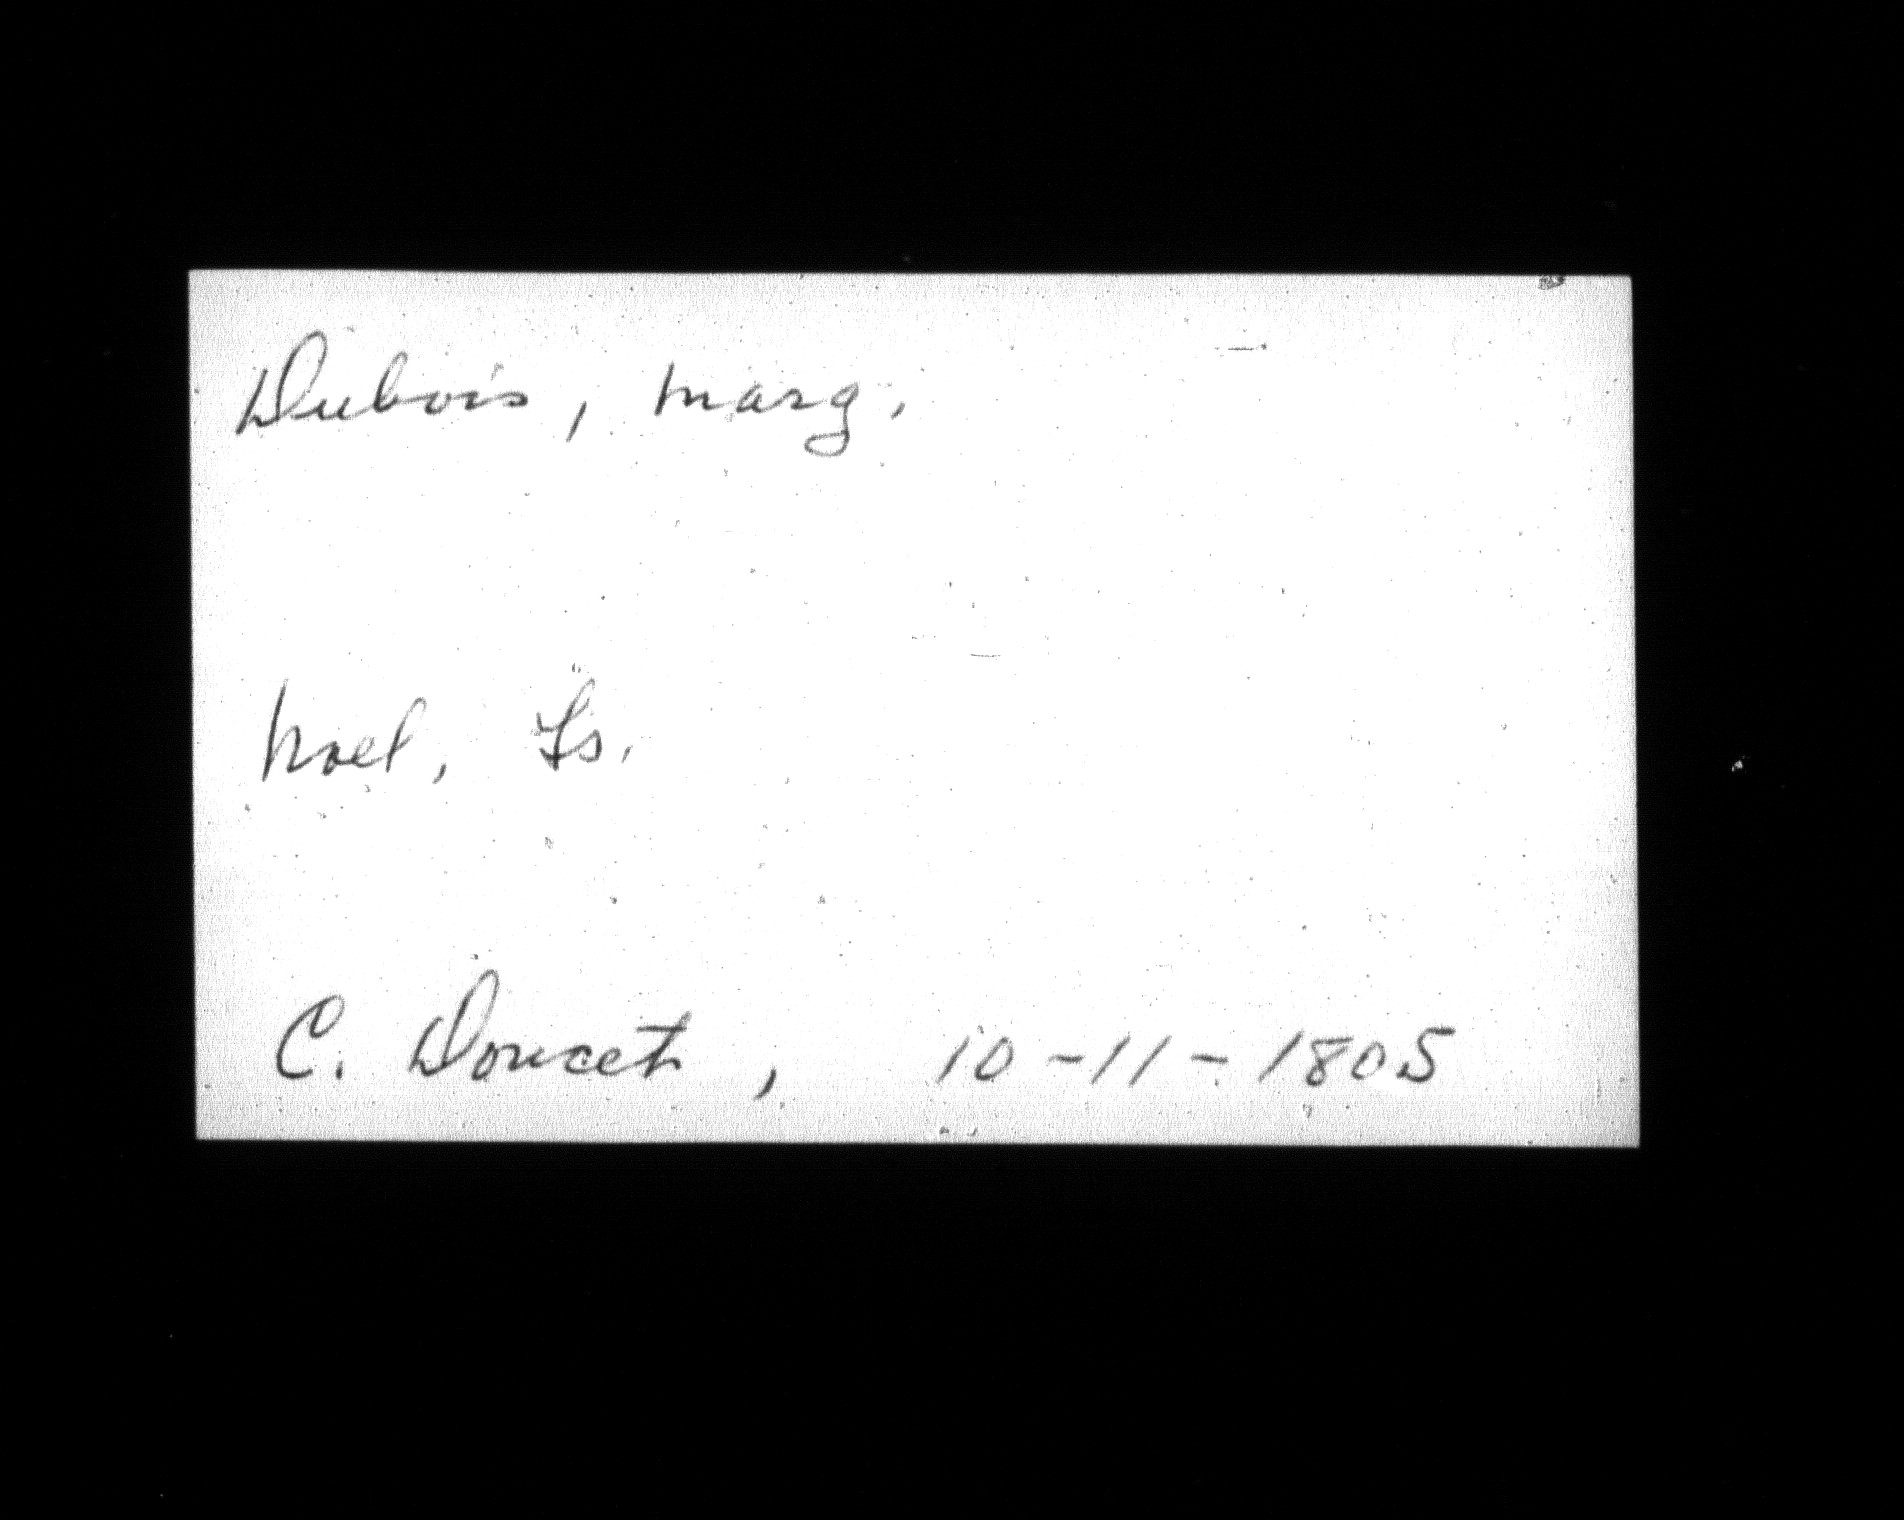 Dubois, Marg.
Noel, Ls.
C. Doucet, 10-11-1805